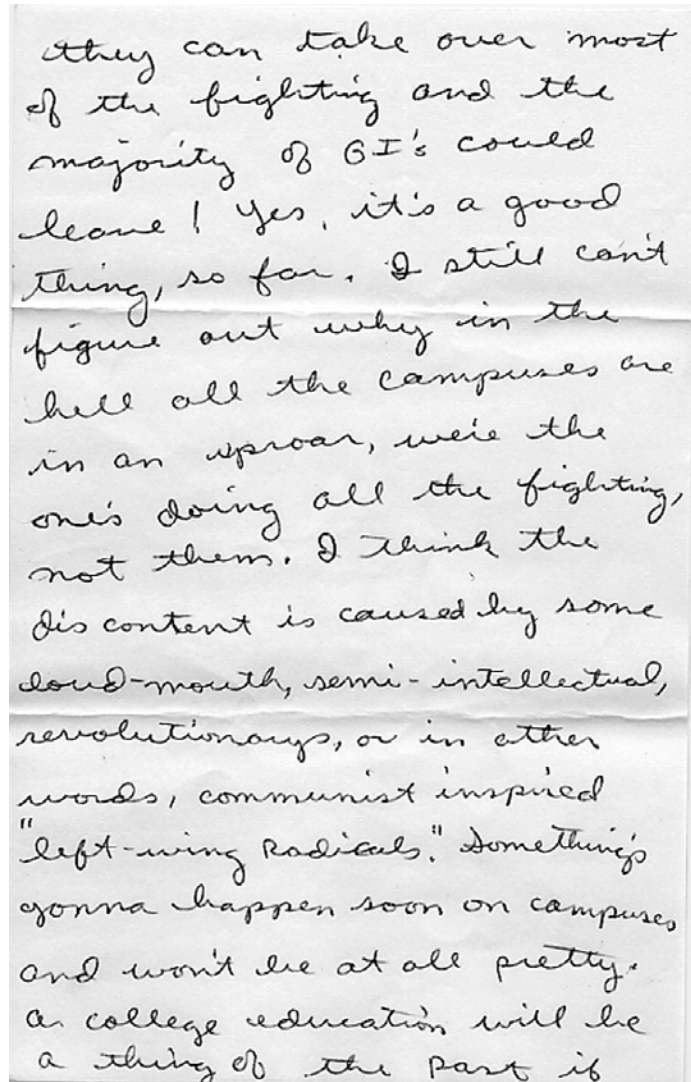 they can take over most
of the fighting and the
majority of GI's could
leave! Yes, it's a good
thing, so far. I still can't
figure out why in the
hell all the campuses are
in an uproar, we're the
one's doing all the fighting,
not them. I think the
dis content is caused by some
loud-mouth, semi-intellectual,
revolutionarys, or in other
words, communist inspired
"left-wing Radicals." Something's
gonna happen soon on campuses
and won't be at all pretty.
A college education will be
a thing of the past if